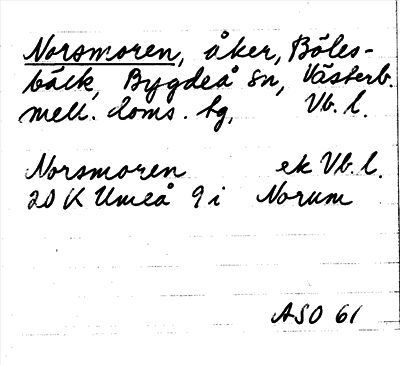 Norsmoren, åker, Böles-
bäck, Bygdeå sn, Västerb.
mell. doms. hg, Vb. l.
Norsmoren ek Vb. l.
20 K Umeå 9 i Norum
ASO 61